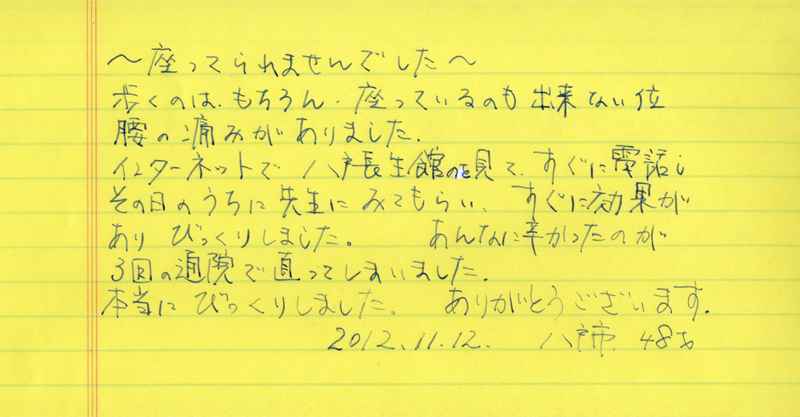 ～座ってられませんでした～
歩くのは、もちろん、座っているのも出来ない位
腰の痛みがありました。
インターネットで 八戸長生館のを見て、すぐに電話し
その日のうちに先生にみてもらい、すぐに効果が
あり びっくりしました。 あんなに辛かったのが
3回の通院で直ってしまいました。
本当にびっくりしました。 ありがとうございます。
2012.11.12. 八戸市 48才